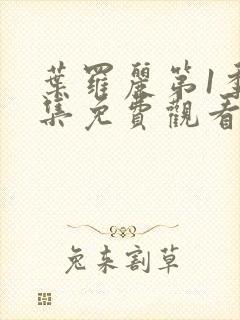 葉羅麗第1季
集免費觀看
兔来割草